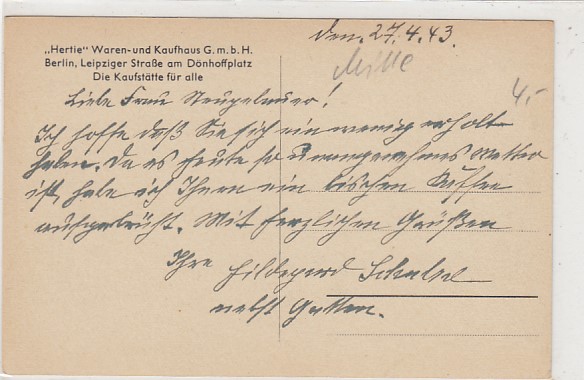 „Hertie" Waren-und Kaufhaus G.m.b.H.
Berlin, Leipziger Straße am Dönhoffplatz
Die Kaufstätte für alle
Den. 27.4.43.
Mitte
4,-
Liebe Frau
Ich hoffe daß Sie sich ein wenig erholt
haben. Da es heute so unangenehmes Wetter
ist, habe ich Ihnen ein bischen Kaffee
aufgebrüht. Mit herzlichen Grüßen
Ihre Hildegard
nebst Gatten.